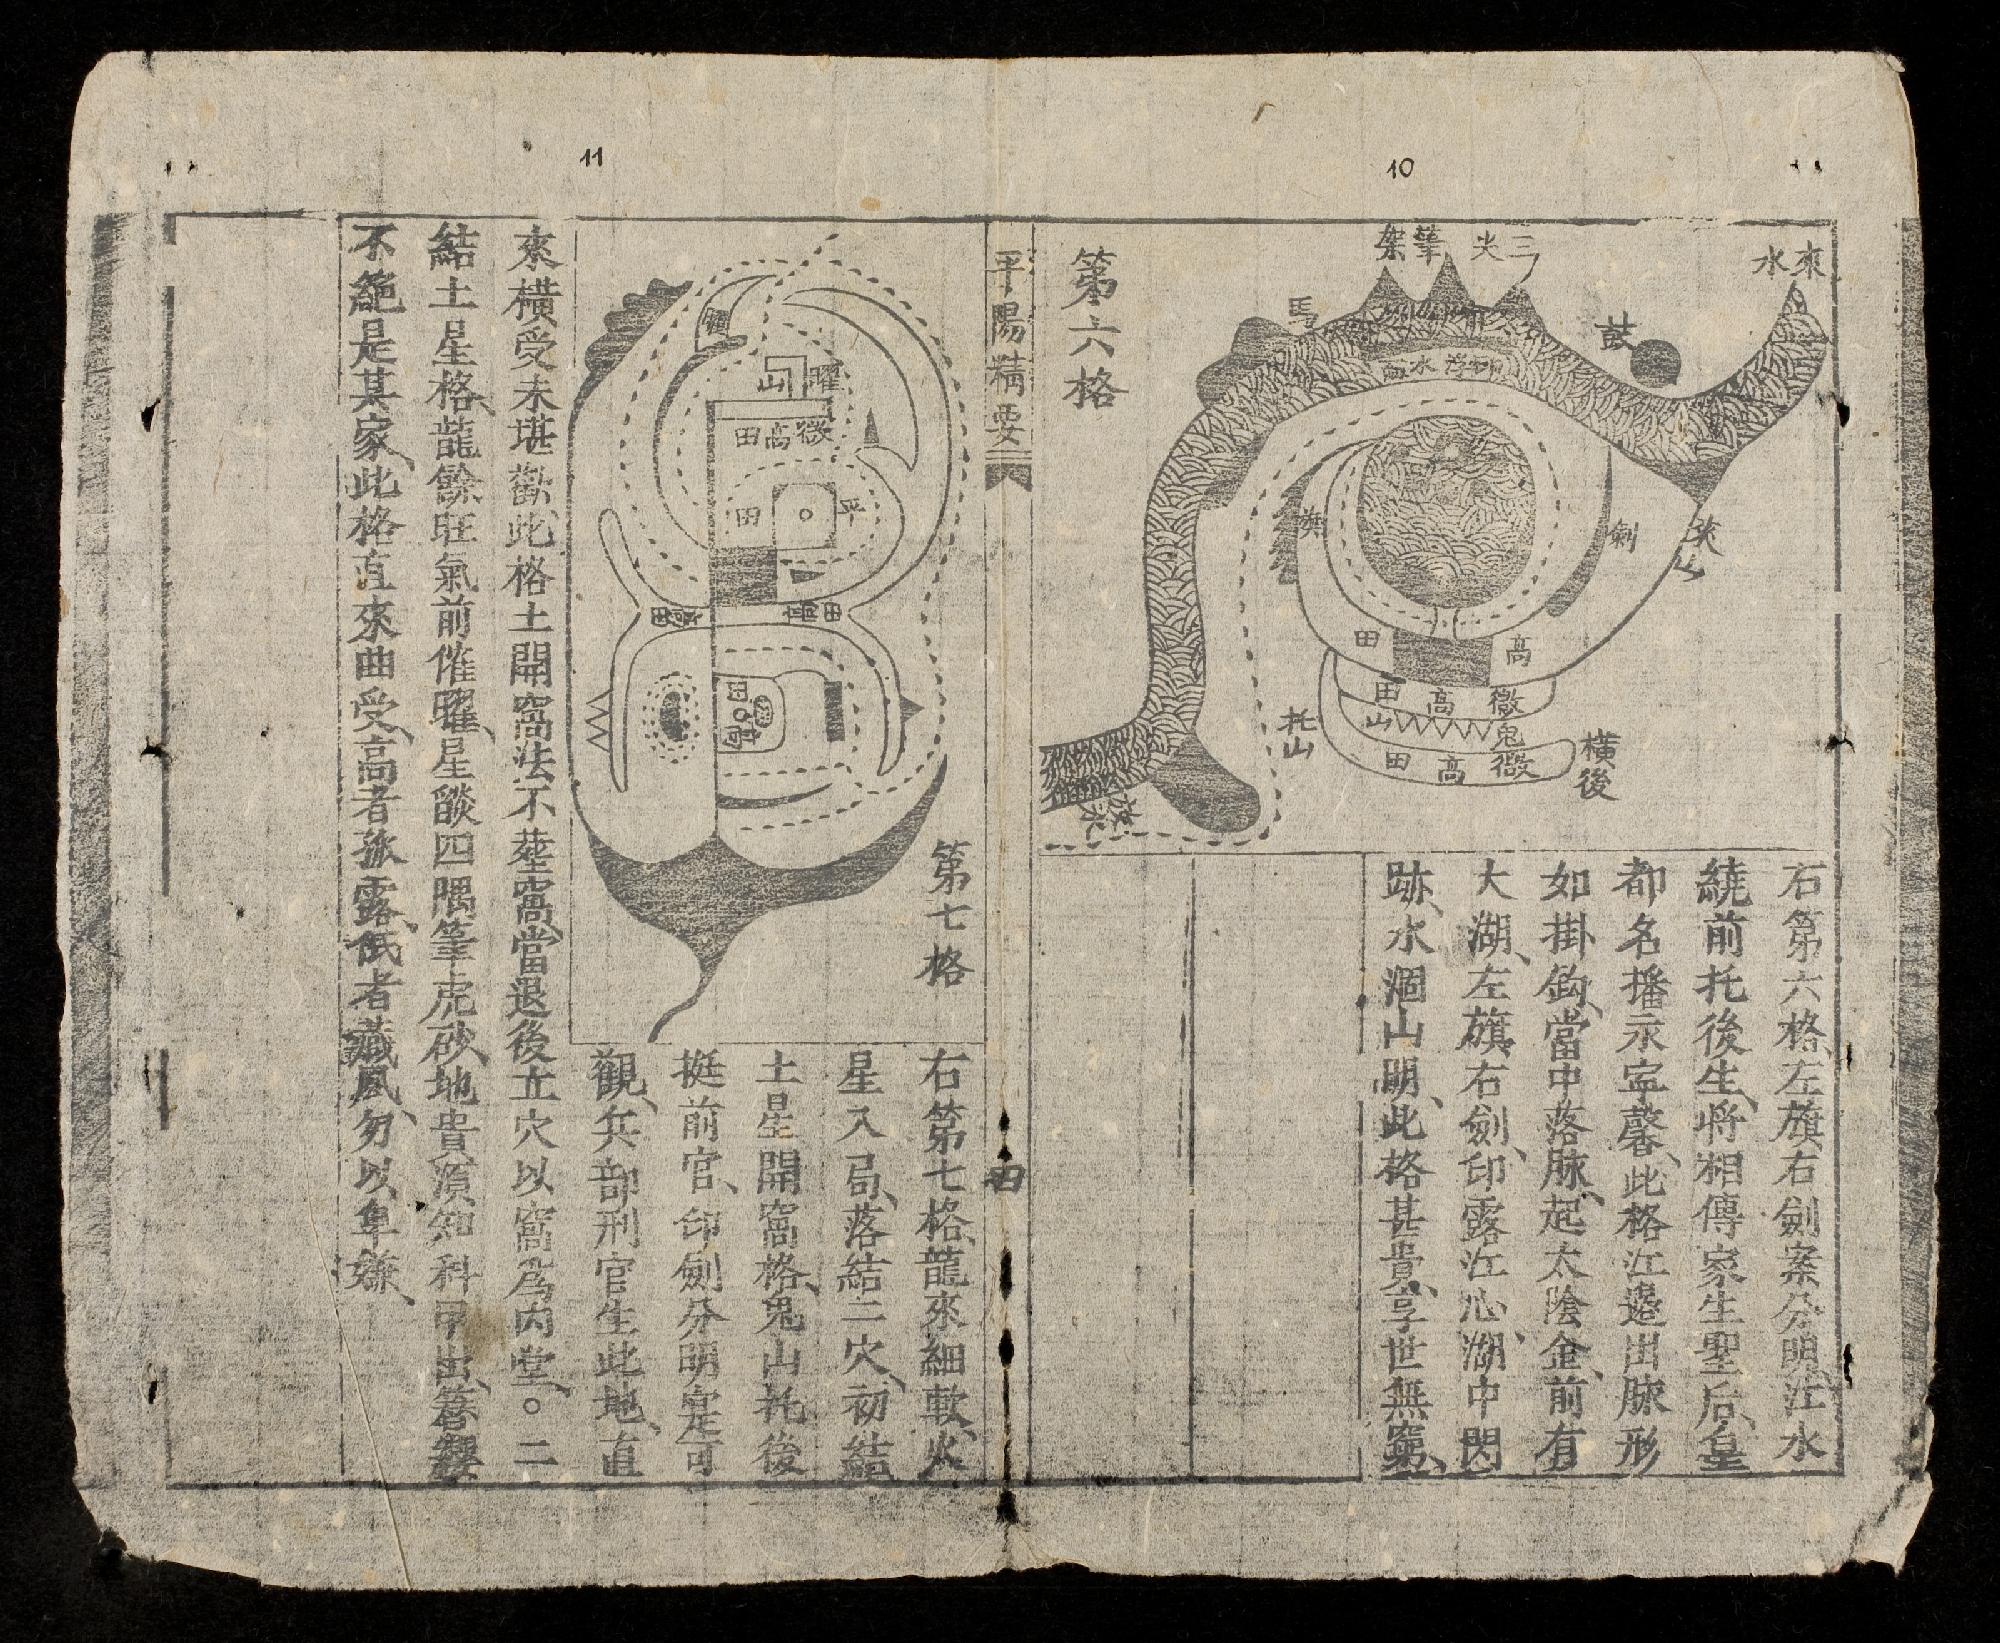 10
第六格
來水
三尖
筆架
馬
鼓
夾山
劍
旗
高田
微高田
鬼山
微高田
橫後
托山
右第六格、左旗右劍案分明、江水
繞前托後生、將相傳家生聖后、皇
都名播永寧馨、此格江邉出脉形
如掛鈎、當中落脉、起太陰金、前有
大湖、左旗右劍、印露江心、湖中閃
跡、水涸山明、此格甚貴、享世無窮、
平陽精要
四
11
第七格
曜山
微高田
平田
高田
右第七格、龍來細軟、火
星入局、落結二穴、初結
土星開窩格、鬼山托後
挺前官、印劍分明寔可
觀、兵部刑官生此地、直
來橫受未堪歡、此格土開窩法不塟窩、當退後立穴以窩爲内堂、○二
結土星格、龍餘旺氣前催曜、星燄四隅筆虎砂、地貴須知科甲出、簪纓
不絕是其家、此格直來曲受、高者孤露、低者藏風、勿以卑嫌、